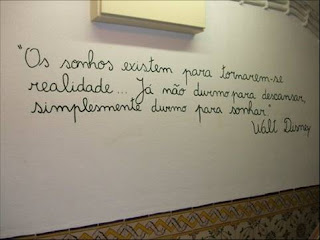 "Os sonhos existem para tornarem-se
realidade... Já não durmo para descansar,
simplesmente durmo para sonhar"
Walt Disney